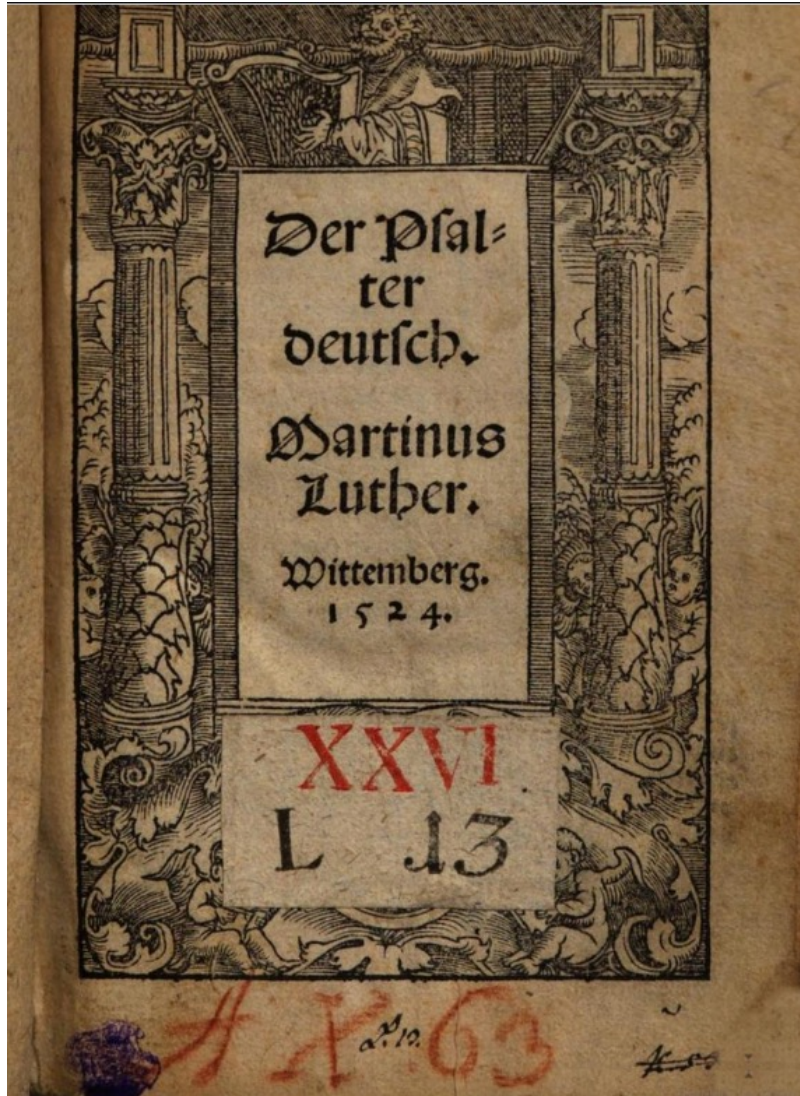 Der Pſal⸗
ter
deutſch.
Martinus
Luther.
Wittemberg.
1524.
XXVI
L 13
A X. 63